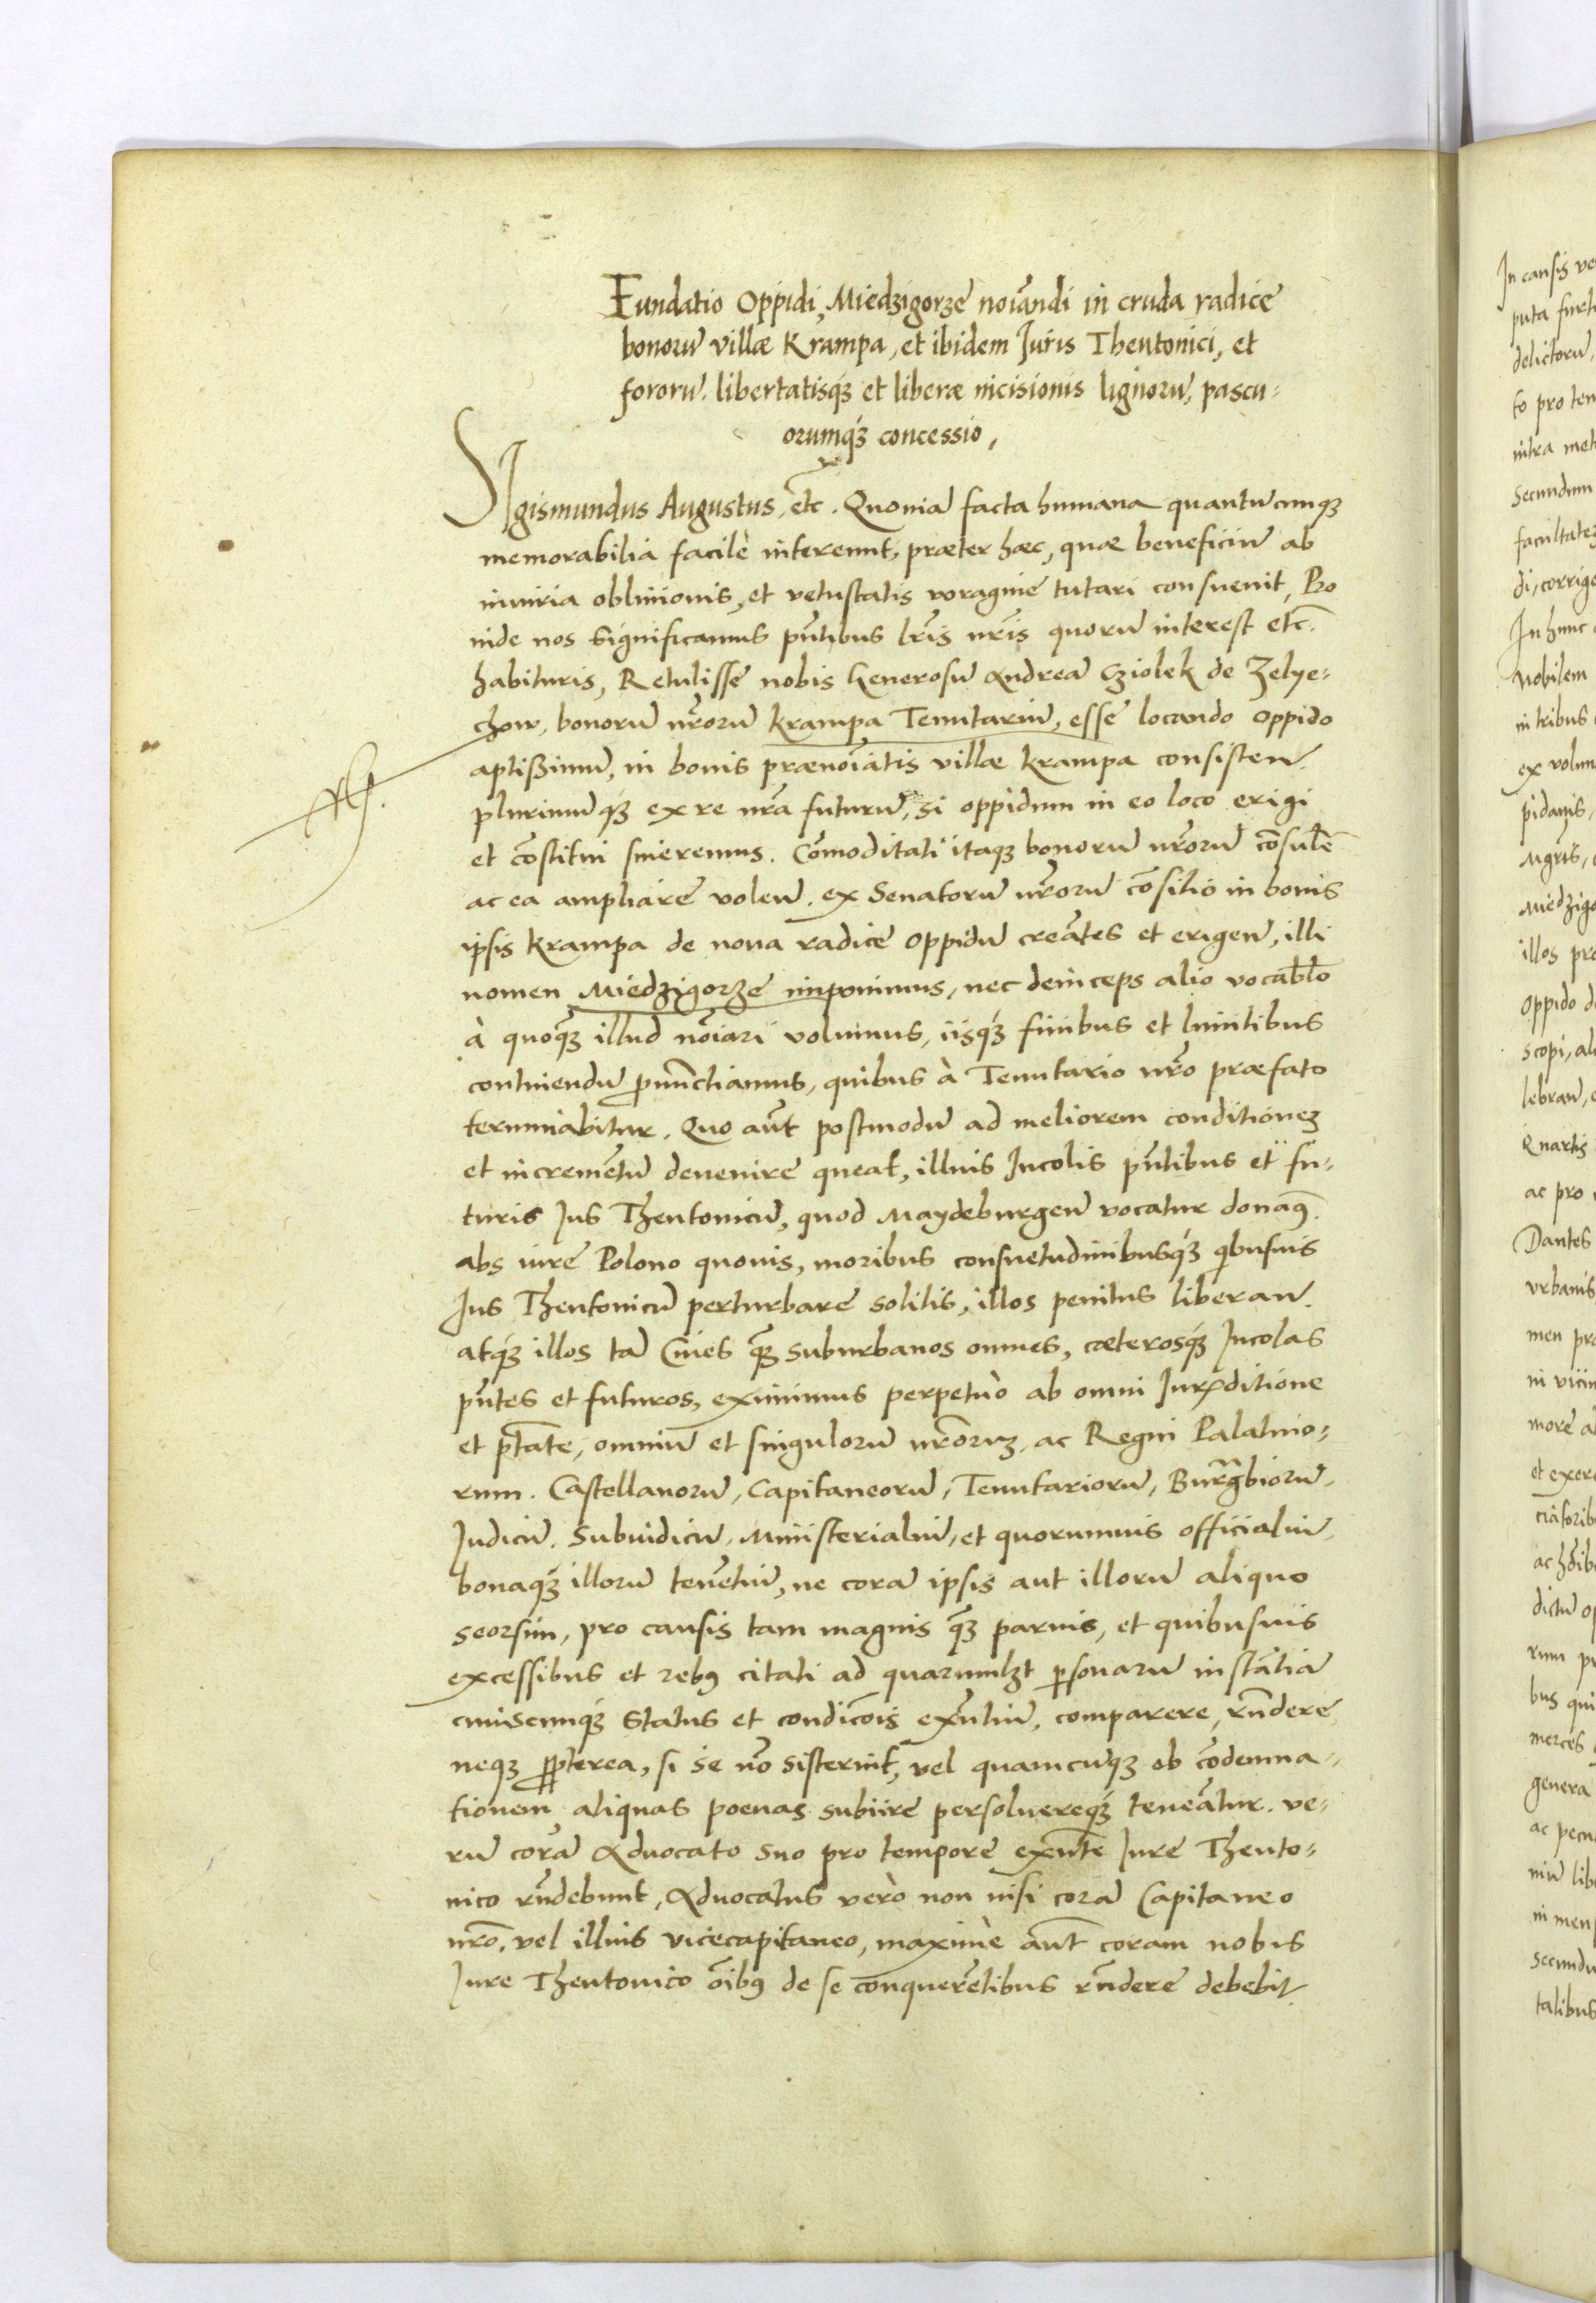 Fundatio Oppidi, Miedzigorze noīandi in cruda radice
bonorū villæ Krampa, et ibidem Juris Theutonici, et
fororū, libertatisq́ꝫ et liberæ incisionis lignorū, pascu-
orumq́ꝫ concessio,
SJgismundus Augustus, etc̄. Quoniā facta humana quantūcunqꝫ
memorabilia facilè intereunt, præter hæc, quæ beneficiū ab
iniuria obliuionis, et vetustatis voragine tutari consueuit, Pro
inde nos significamus pn̄tibus lr̄is nr̄is quorū interest etc̄.
habituris, Retulisse nobis Generosū Andreā Cziolek de Zelye-
chow, bonorū nr̄orū Krampa Tenutariū, esse locando oppido
aptißimū, in bonis prænoīatis villæ Krampa consisteñ.
plurimūq́ꝫ ex re nr̄a futurū, si oppidum in eo loco erigi
et cōstitui sineremus. Cōmoditati itaqꝫ bonorū nr̄orū cōsulē
ac ea ampliare voleñ. ex Senatorū nr̄orū cōsilio in bonis
ipsis Krampa de noua radice oppidū creātes et erigeñ, illi
nomen Miedzigorze imponimus, nec deinceps alio vocabl̄o
à quoq̄ꝫ illud nōiari volumus, iisq́ꝫ finibus et limitibus
continendū pronūctiamus, quibus à Tenutario nr̄o præfato
terminabitur. Quo aūt postmodū ad meliorem conditionēꝫ
et incremētū deuenire queat, illius Incolis pn̄tibus et fu-
turis Jus Theutonicū, quod Maydeburgeñ vocatur donamꝯ.
abs iure Polono quouis, moribus consuetudinibusq́ꝫ qibusuis
Jus Theutonicū perturbare solitis, illos penitus liberañ.
atq́ꝫ illos tā Ciues q̄ꝫ suburbanos omnes, cæterosq́ꝫ Incolas
pn̄tes et futuros, eximimus perpetuò ab omni Jurꝭditione
et pt̄ate, omniū et singulorū nr̄orꝫ ac Regni Palatino-
rum. Castellanorū, Capitaneorū, Tenutariorū, Burgrabiorū,
Judicū. Subiudicū, Ministerialiū, et quorumuis officialiū,
bonaq́ꝫ illorū tenētiū, ne corā ipsis aut illorū aliquo
seorsim, pro causis tam magnis q̄ꝫ paruis, et quibusuis
excessibus et rebꝯ citati ad quarumlꝫt ꝑsonarū instātiā
cuiuscunq́ꝫ status et condicōis exn̄tiū, comparere, rn̄dere
neqꝫ ꝓpterea, si se nō sisterint, vel quamcūqꝫ ob cōdemna-
tionem aliquas poenas subire persoluereq́ꝫ teneātur. ve-
rū corā Aduocato suo pro tempore exn̄te Jure Theuto-
nico rn̄debunt, Aduocatus verò non nisi corā Capitaneo
nr̄o. vel illius vicecapitaneo, maximè aūt coram nobis
Jure Theutonico ōibꝯ de se conquerētibus rn̄dere debebit.